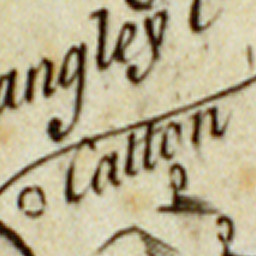 angley
Catton